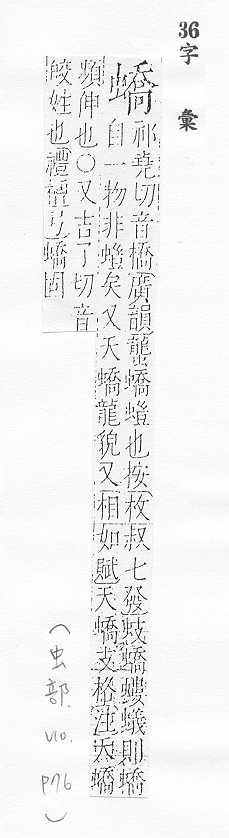 36
字彙
蟜 祁堯切音橋廣韻蠪蟜螘也按枚叔七發蚑蟜螻蟻則蟜
自一物非螘矣又夭蟜龍貌又相如賦夭蟜支格注夭蟜
頻伸也○又吉了切音
皎姓也禮記蟜固
(虫部.
V10.
P76)